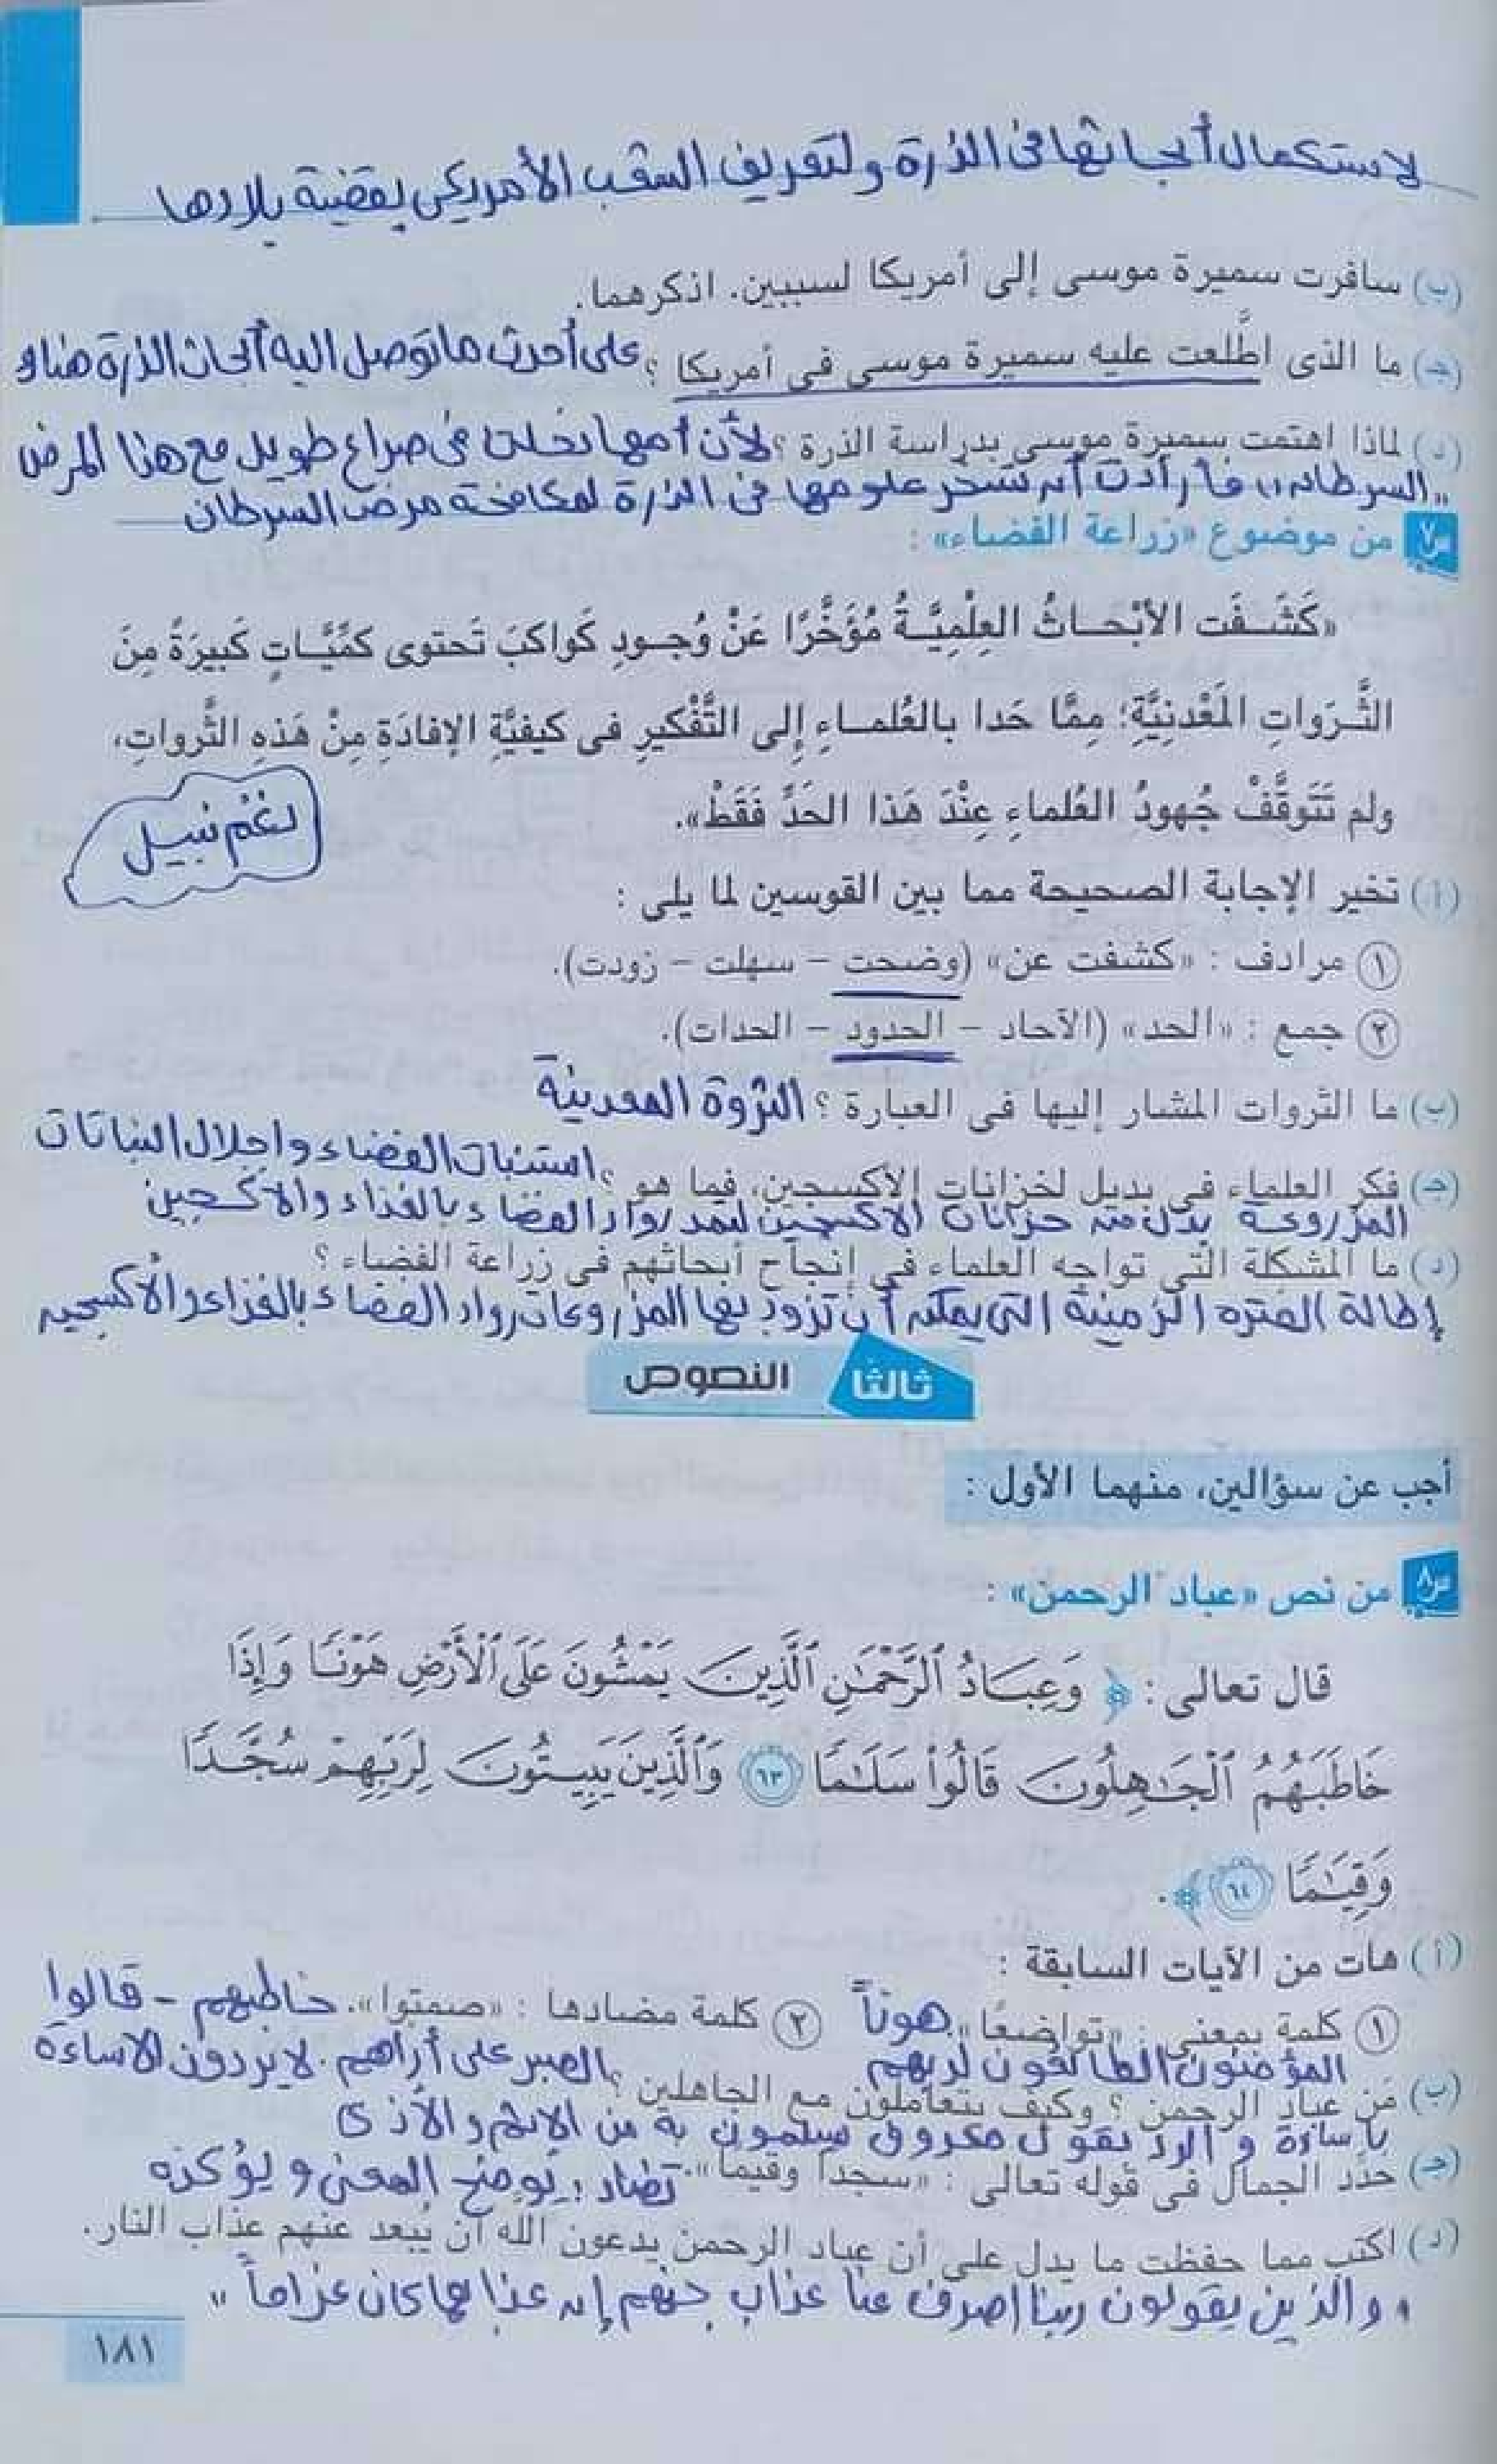 لاستكمال أبحاثها فى الذرة ولتعريف الشعب الأمريكى بقضية بلادها
(ب) سافرت سميرة موسى إلى أمريكا لسببين. اذكرهما.
(جـ) ما الذى اطَّلعت عليه سميرة موسى فى أمريكا ؟ على أحدث ما توصل اليه أبحاث الذرة هناك
(د) لماذا اهتمت سميرة موسى بدراسة الذرة ؟ لأن أمها دخلت فى صراع طويل مع هذا المرض
"السرطان" فأرادت أن تسخر علومها فى الذرة لمكافحة مرض السرطان
س٧ من موضوع «زراعة الفضاء» :
«كَشَـفَت الأبْحـاثُ العِلْمِيَّـةُ مُؤَخَّرًا عَنْ وُجـودِ كَواكبَ تَحتوى كمِّيَّـاتٍ كَبيرَةً مِنَ
الثَّـرَواتِ المَعْدنِيَّةِ؛ مِمَّا حَدا بالعُلمـاءِ إلى التَّفْكيرِ فى كيفيَّةِ الإفادَةِ مِنْ هَذهِ الثَّرواتِ،
ولم تَتَوقَّفْ جُهودُ العُلماءِ عِنْدَ هَذا الحَدِّ فَقَطْ».
نغم نبيل
(أ) تخير الإجابة الصحيحة مما بين القوسين لما يلى :
① مرادف : «كشفت عن» (وضحت – سهلت – زودت).
② جمع : «الحد» (الآحاد – الحدود – الحدات).
(ب) ما الثروات المشار إليها فى العبارة ؟ الثروة المعدنية
(جـ) فكر العلماء فى بديل لخزانات الأكسجين، فما هو ؟ استنبات الفضاء وإحلال النباتات
المزروعة بدل من خزانات الاكسجين لتمد رواد الفضاء بالغذاء والاكسجين
(د) ما المشكلة التى تواجه العلماء فى إنجاح أبحاثهم فى زراعة الفضاء ؟
إطالة الفتره الزمنية التى يمكن أن تزود بها المزروعات رواد الفضاء بالغذاء والأكسجين
ثالثا النصوص
أجب عن سؤالين، منهما الأول :
س٨ من نص «عباد الرحمن» :
قال تعالى : ﴿ وَعِبَادُ ٱلرَّحْمَٰنِ ٱلَّذِينَ يَمْشُونَ عَلَى ٱلْأَرْضِ هَوْنًا وَإِذَا
خَاطَبَهُمُ ٱلْجَٰهِلُونَ قَالُوا۟ سَلَٰمًا ٦٣ وَٱلَّذِينَ يَبِيتُونَ لِرَبِّهِمْ سُجَّدًا
وَقِيَٰمًا ٦٤ ﴾.
(أ) هات من الآيات السابقة :
① كلمة بمعنى : «تواضعًا». هوناً ② كلمة مضادها : «صمتوا». خاطبهم - قالوا
المؤمنون الطائعون لربهم
(ب) مَن عباد الرحمن ؟ وكيف يتعاملون مع الجاهلين ؟ الصبر على أراهم. لا يردون الاساءة
باساءة و الرد بقول معروف يسلمون به من الإثم والأذى
(جـ) حدِّد الجمال فى قوله تعالى : «سجدًا وقيمًا». تضاد ; يوضح المعنى ويؤكده
(د) اكتب مما حفظت ما يدل على أن عباد الرحمن يدعون الله أن يُبعد عنهم عذاب النار.
"والذين يقولون ربنا اصرف عنا عذاب جهنم إن عذابها كان غراماً"
١٨١